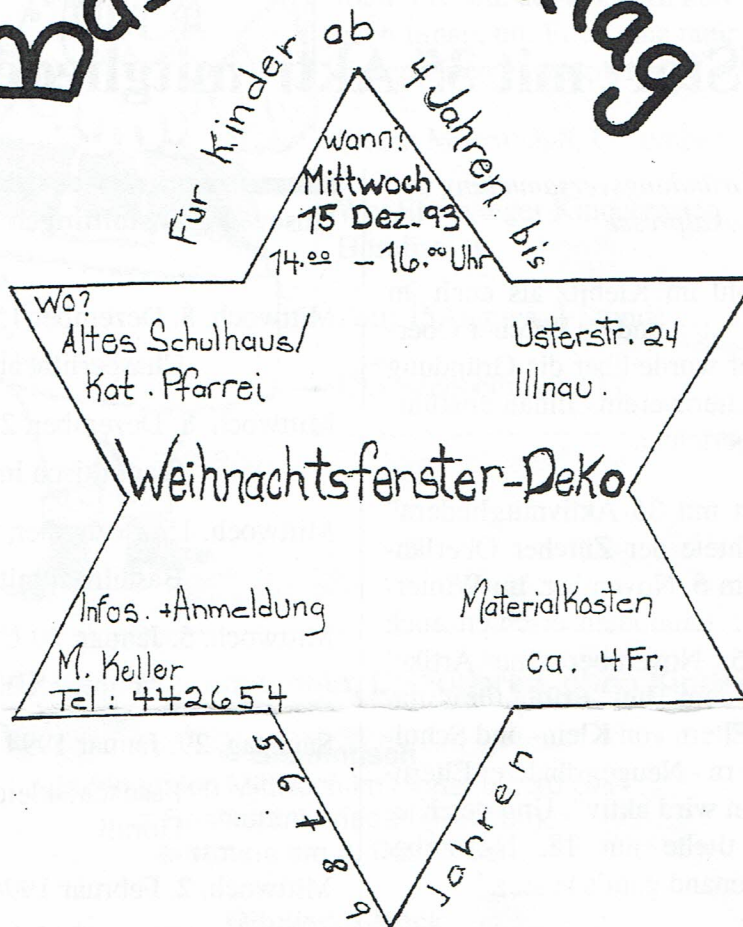 Für Kinder ab 4 Jahren bis
Wann?
Mittwoch
15 Dez. 93
14.00 - 16.00 Uhr
Wo?
Altes Schulhaus/
Kat. Pfarrei
Usterstr. 24
Illnau.
Weihnachtsfenster-Deko
Infos. + Anmeldung
M. Keller
Tel.: 442654
Materialkosten
ca. 4 Fr.
5 6 7 8 9 Jahren